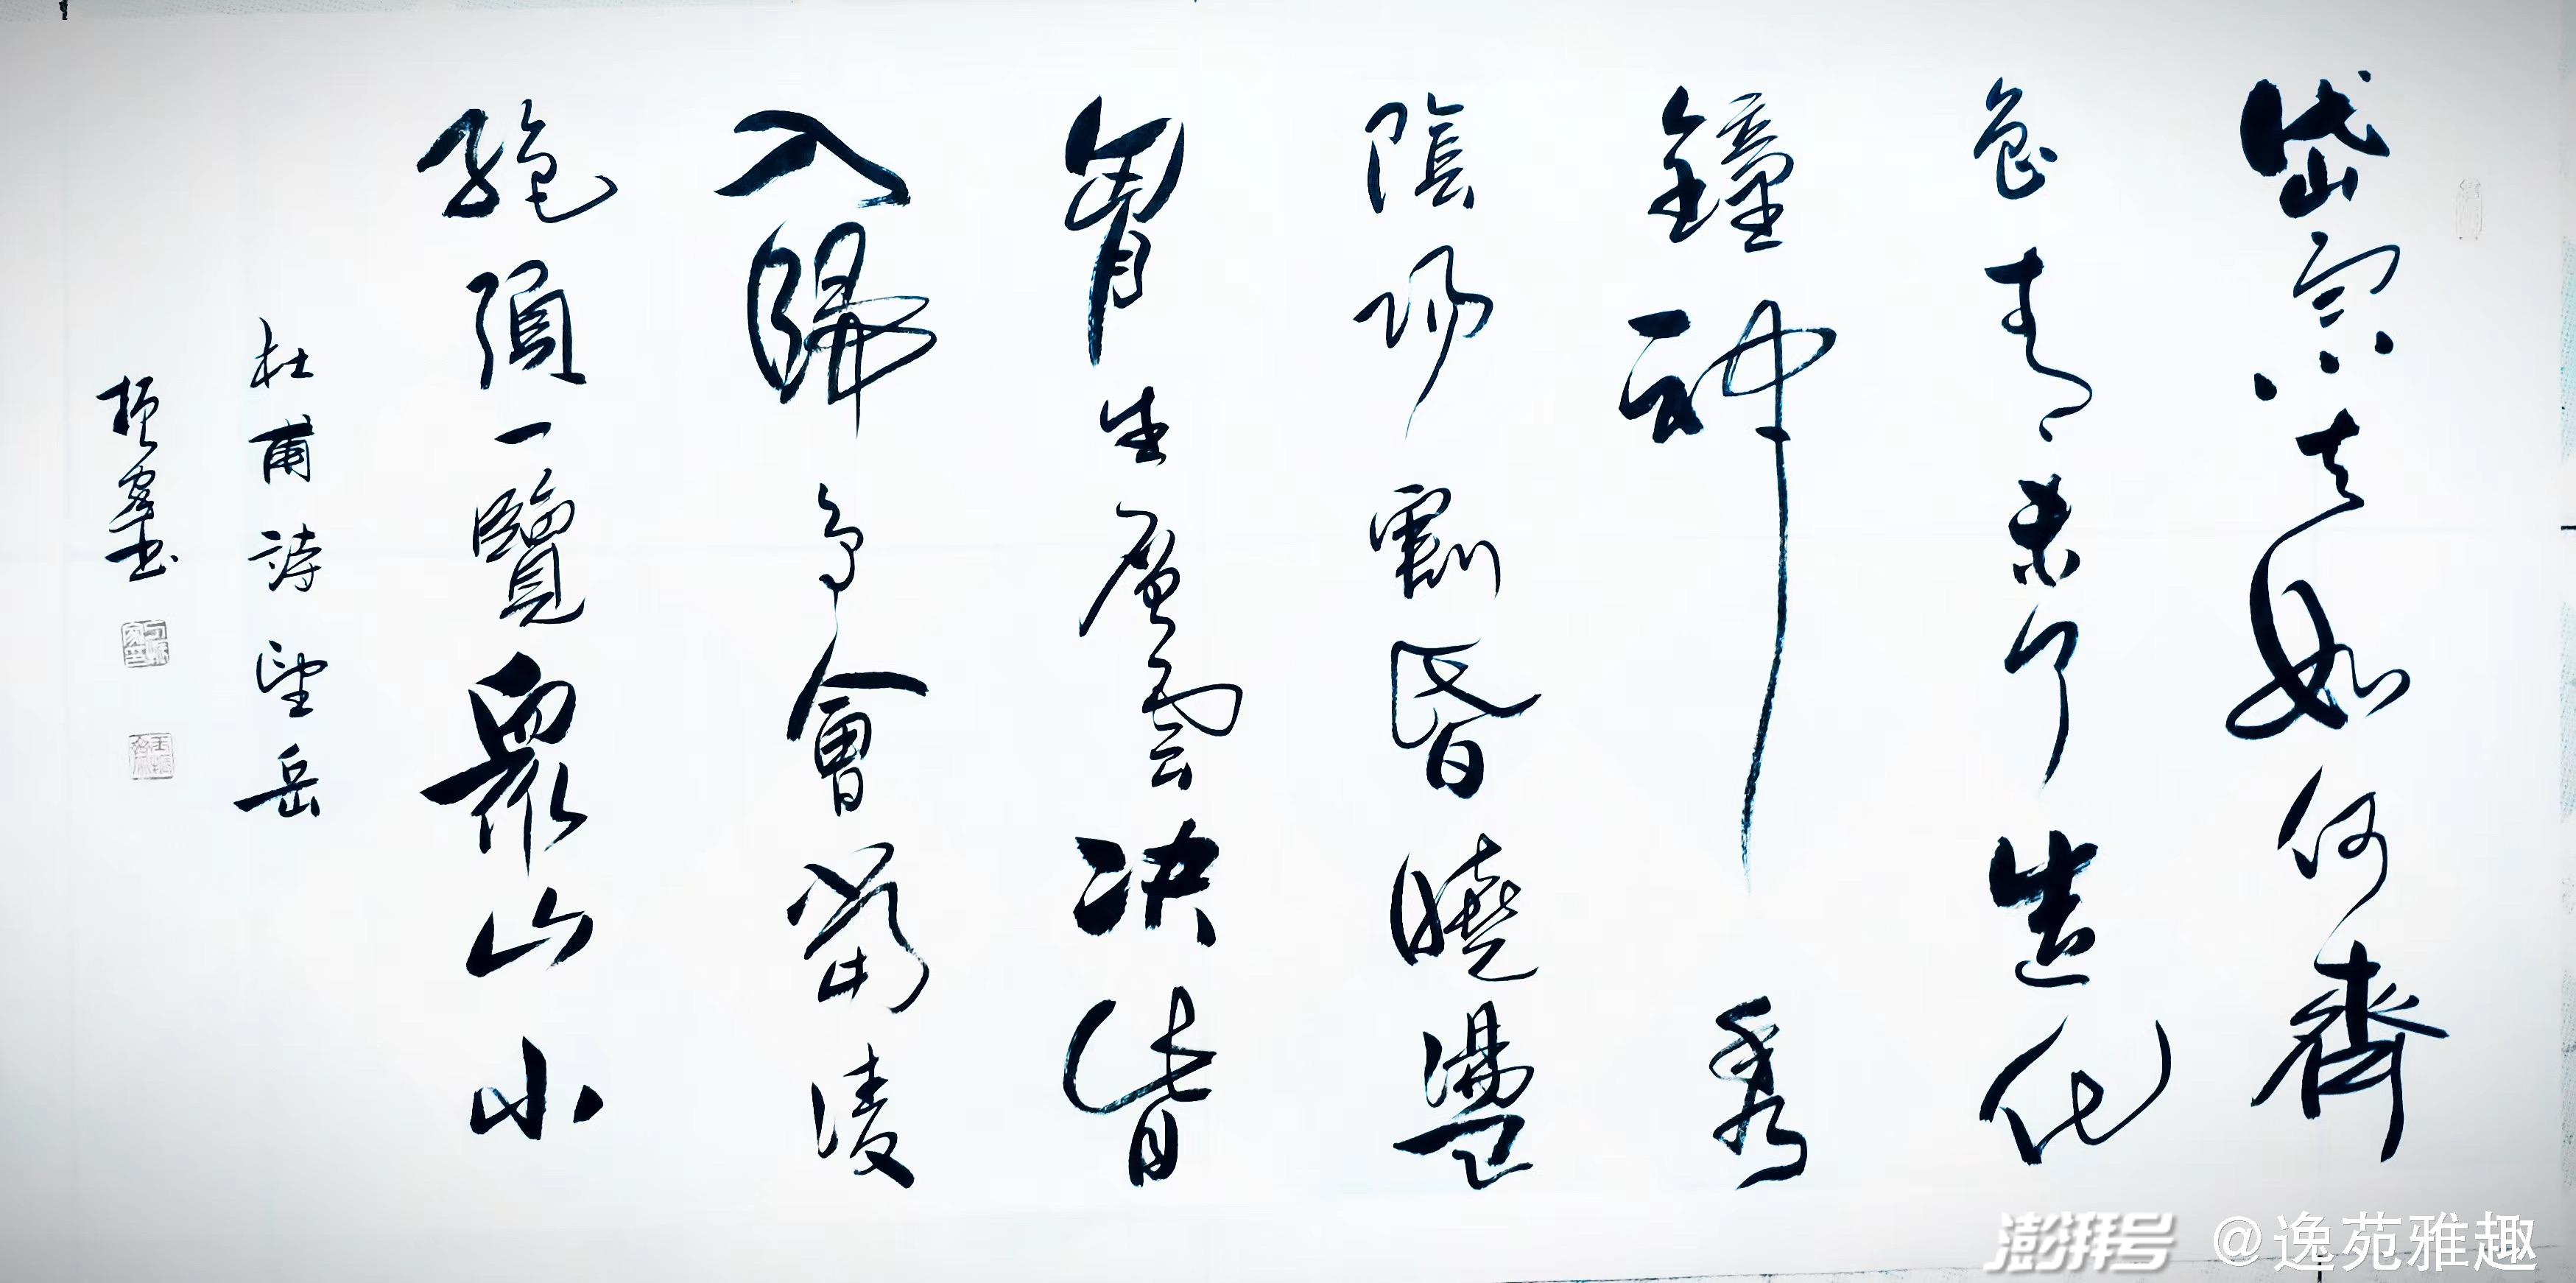 岱宗夫如何齊
魯青未了造化
鐘神秀
陰陽割昏曉盪
胷生層雲決眥
入歸鳥會當凌
絕頂一覽眾山小
杜甫詩望岳
振書
澎湃号 @逸苑雅趣